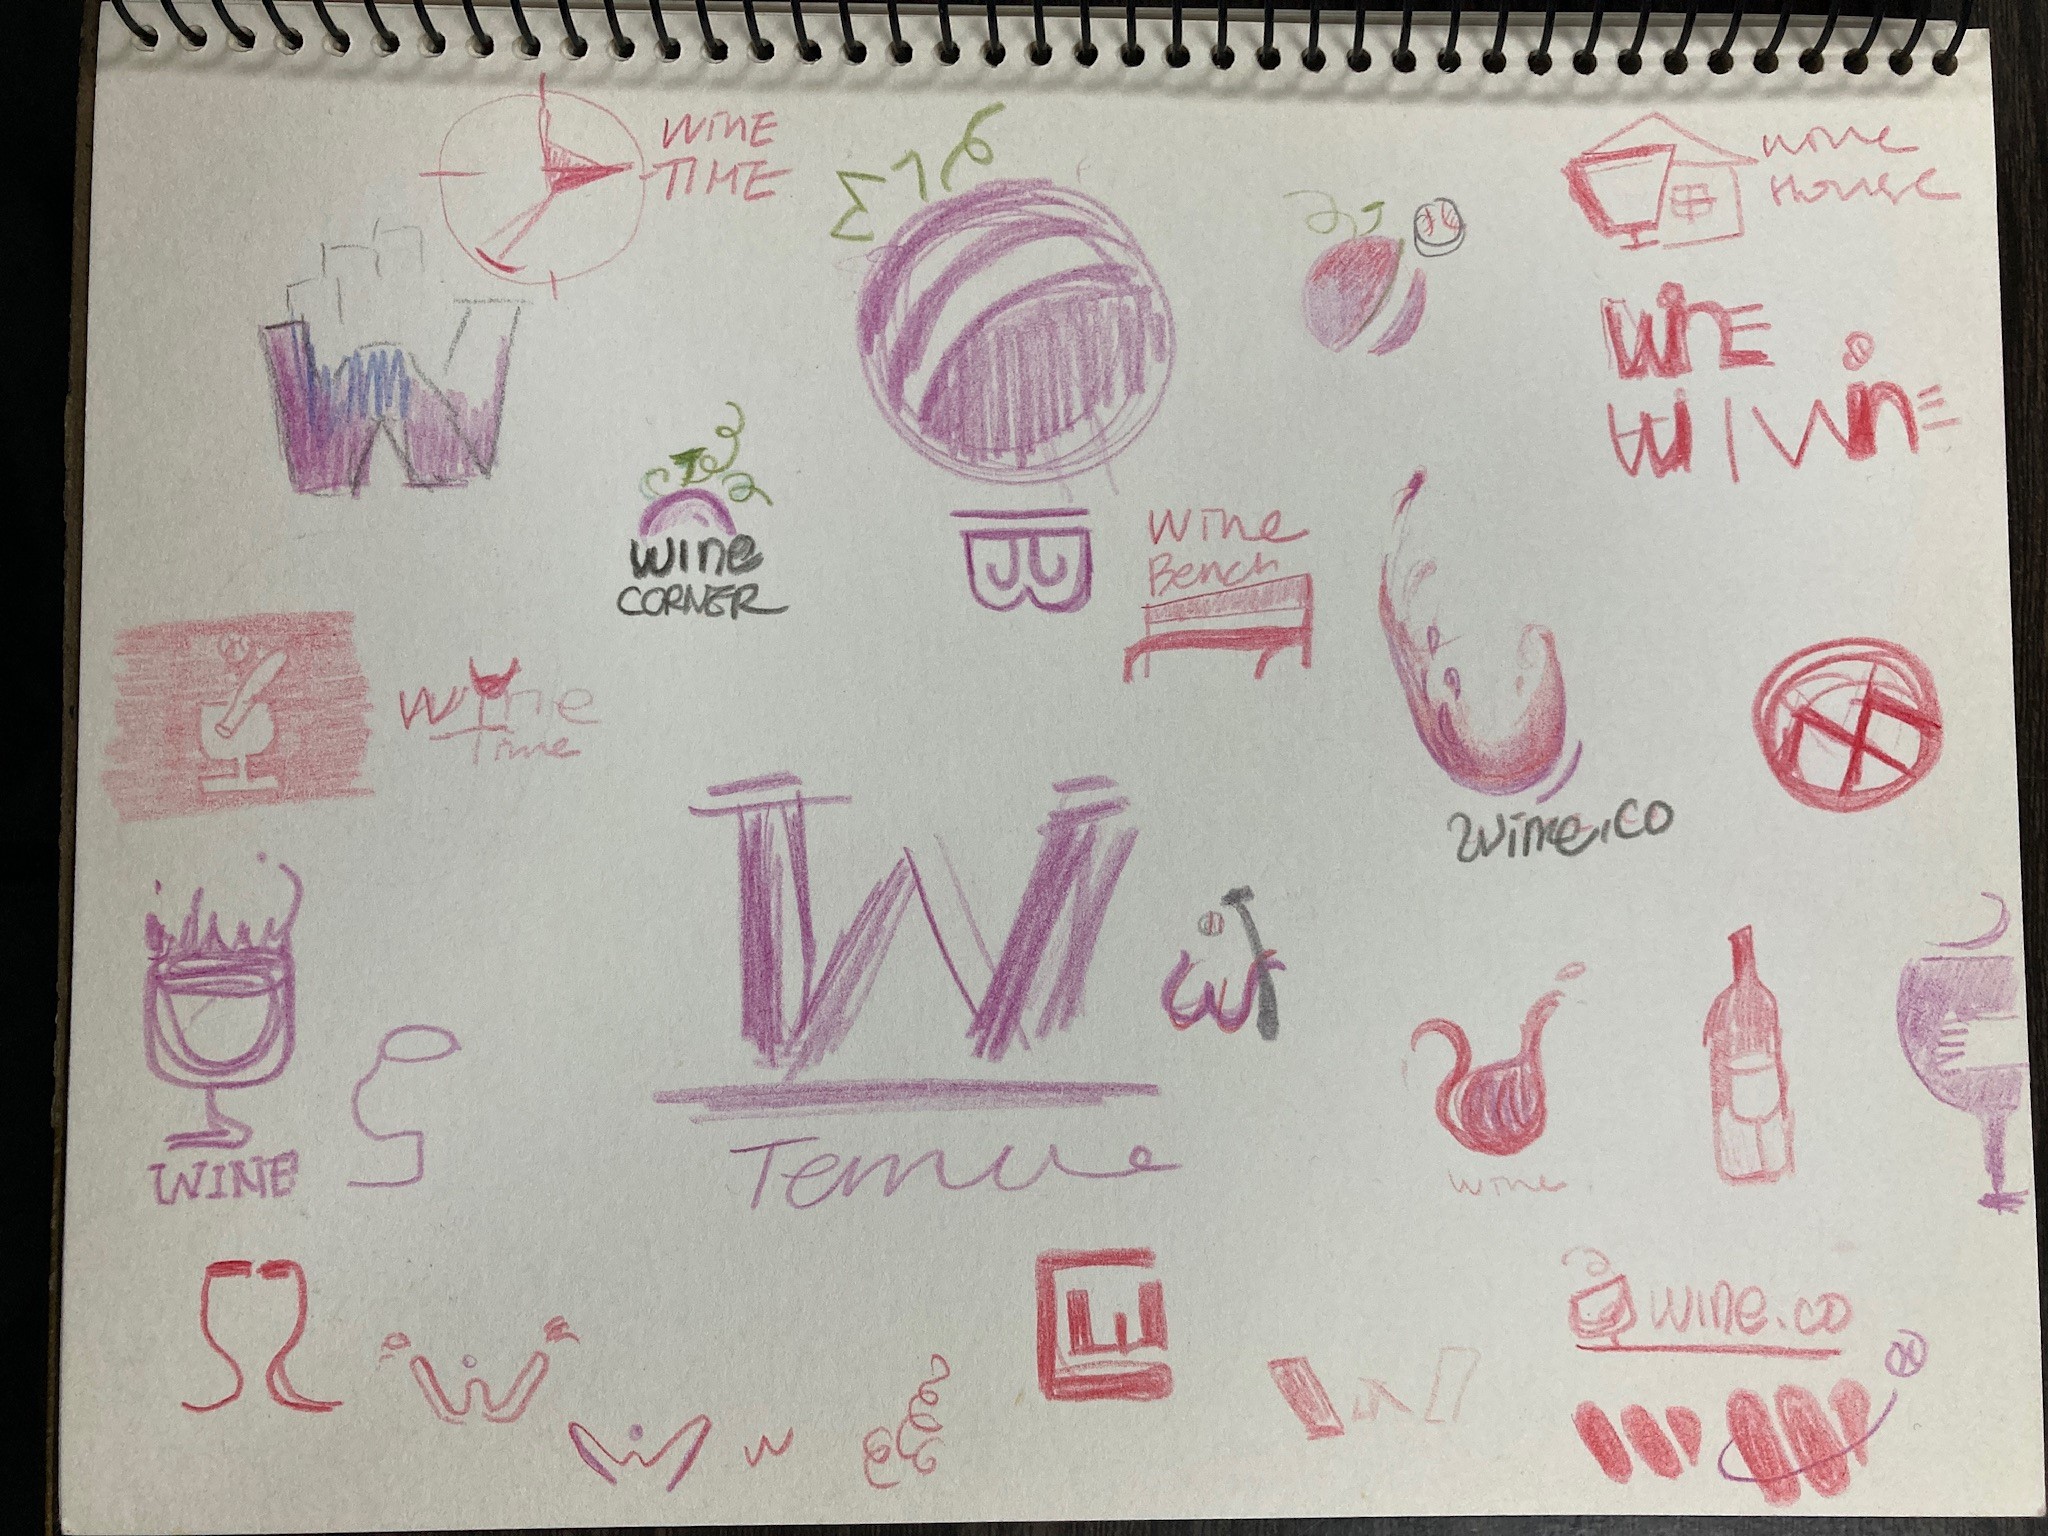 WINE
TIME
wine
House
WinE
Wi | WinE
wine
CORNER
Wine
Bench
Wine
Time
Wine.co
W
WINE
wine
wine.co
W